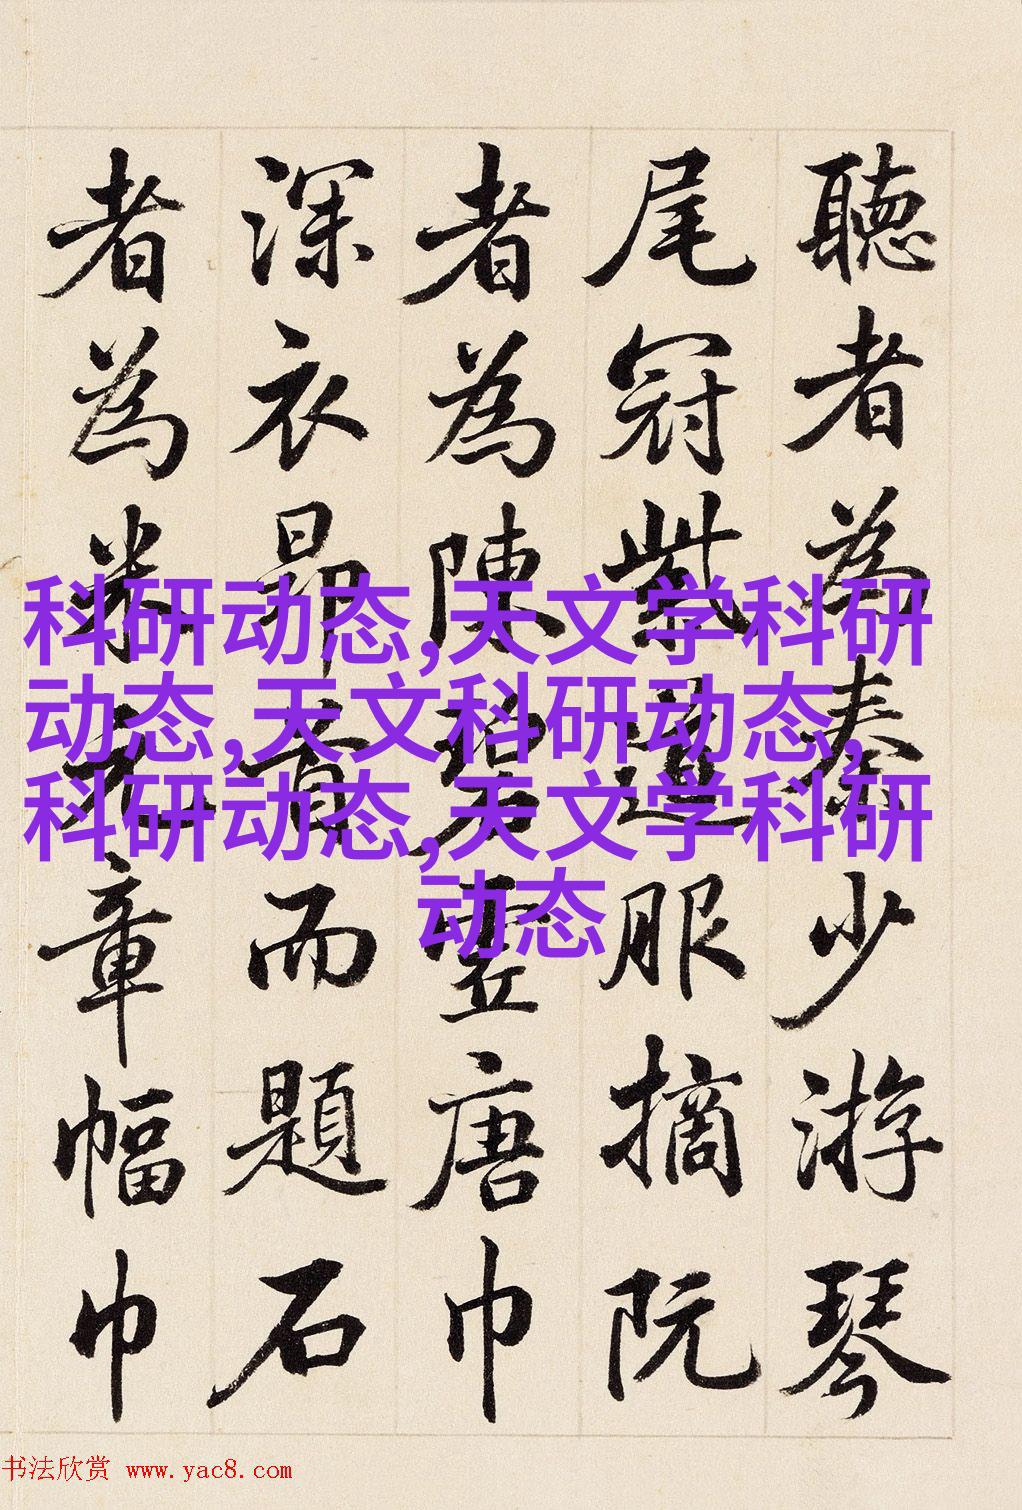 聽者為秦少游琴
尾冠紫道服摘阮
者為陳碧虛唐巾
深衣昂首而題石
者為米元章幅巾
科研动态,天文学科研
动态,天文科研动态,
科研动态,天文学科研
动态
书法欣赏 www.yac8.com